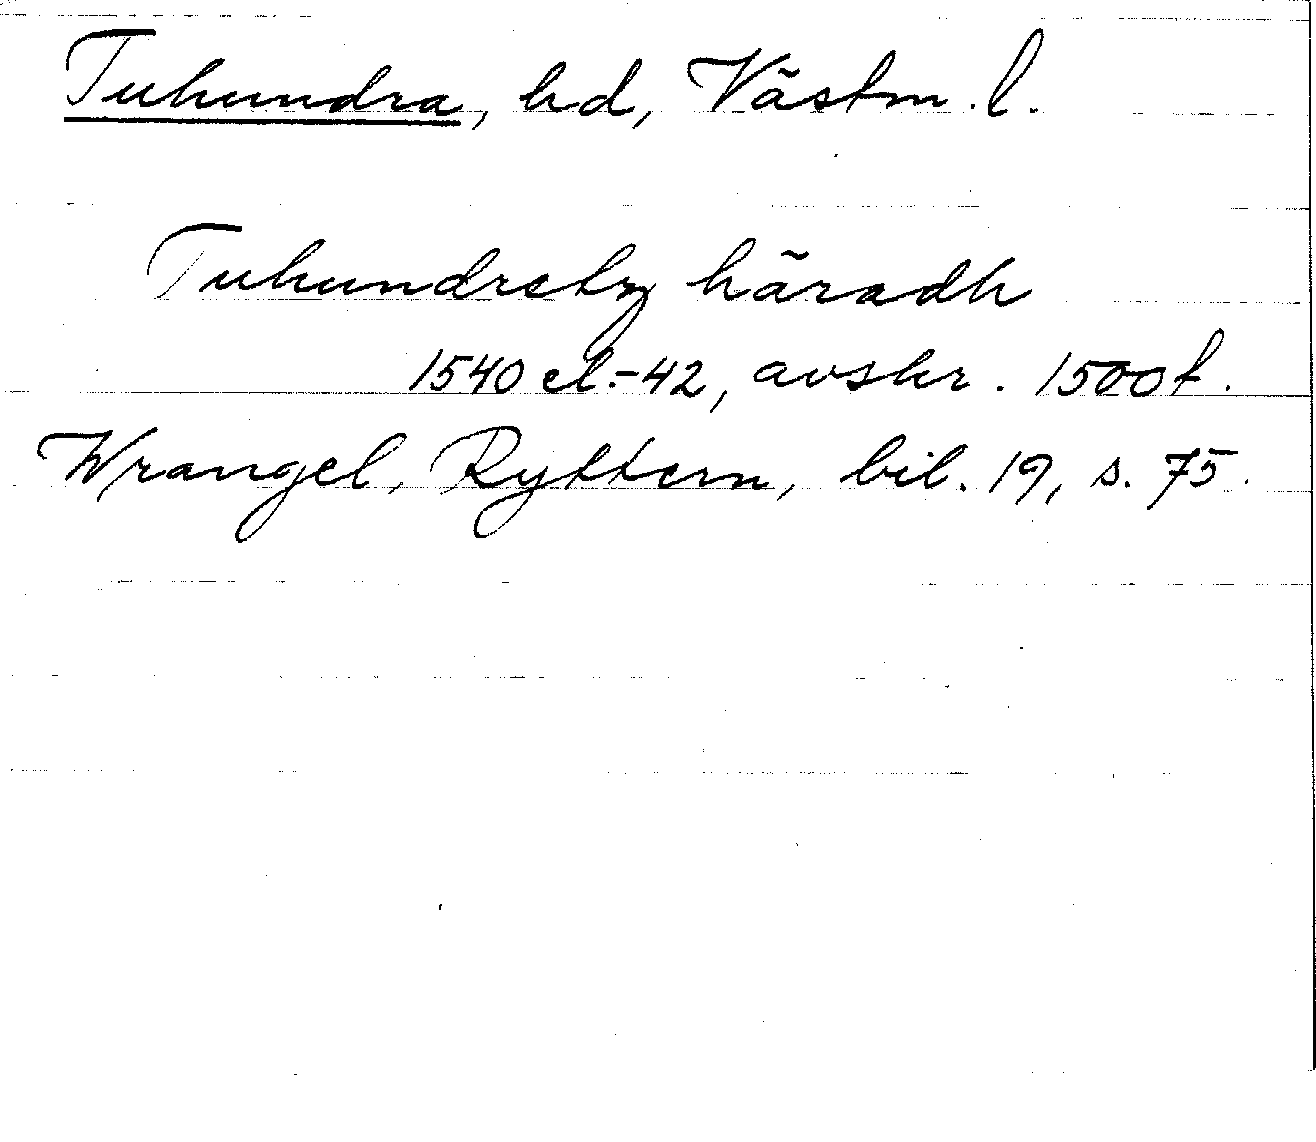 Tuhundra, hd, Västm. l.
Tuhundretz häradh
1540 el.-42, avskr. 1500 t.
Wrangel, Ryttern, bil. 19, s. 75.